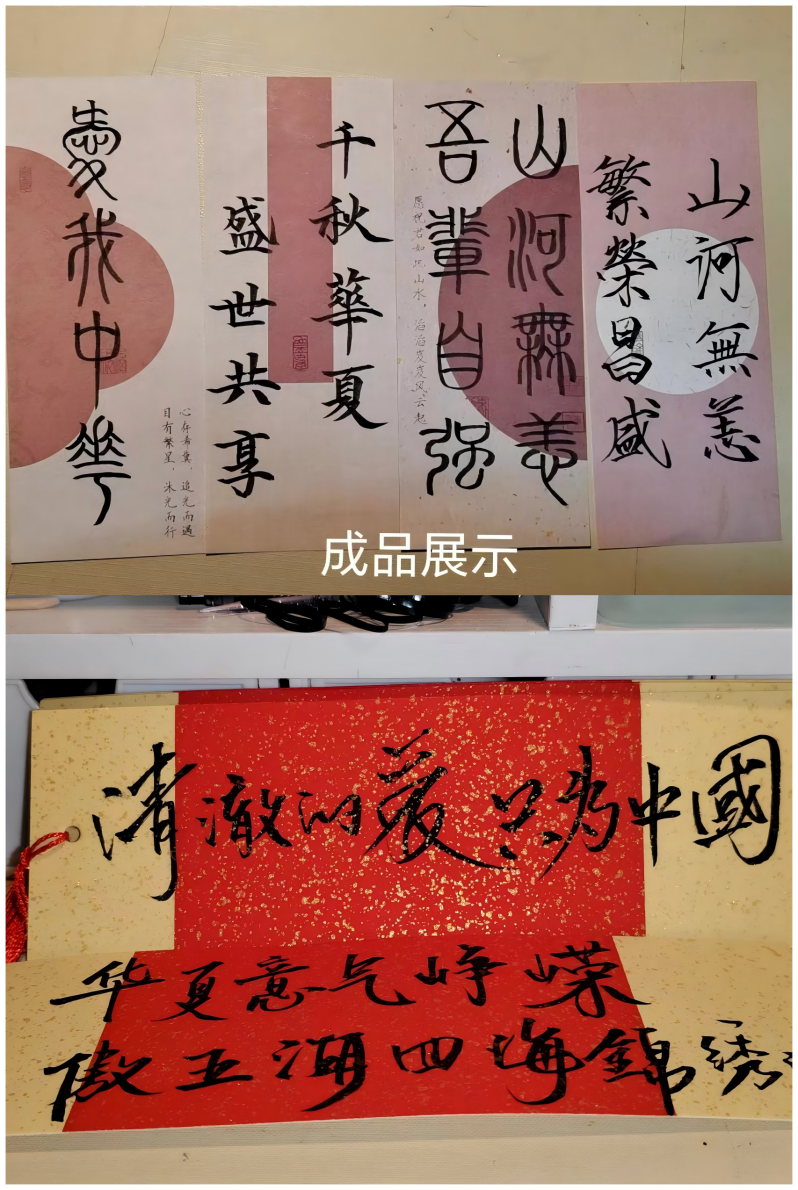 山河無恙
繁榮昌盛
山河無恙
吾輩自强
愿祝君如此山水，滔滔岌岌风云起
千秋華夏
盛世共享
愛我中華
心存希冀，追光而遇
目有繁星，沐光而行
成品展示
清澈的爱只为中國
华夏意气峥嵘
傲五湖四海錦绣